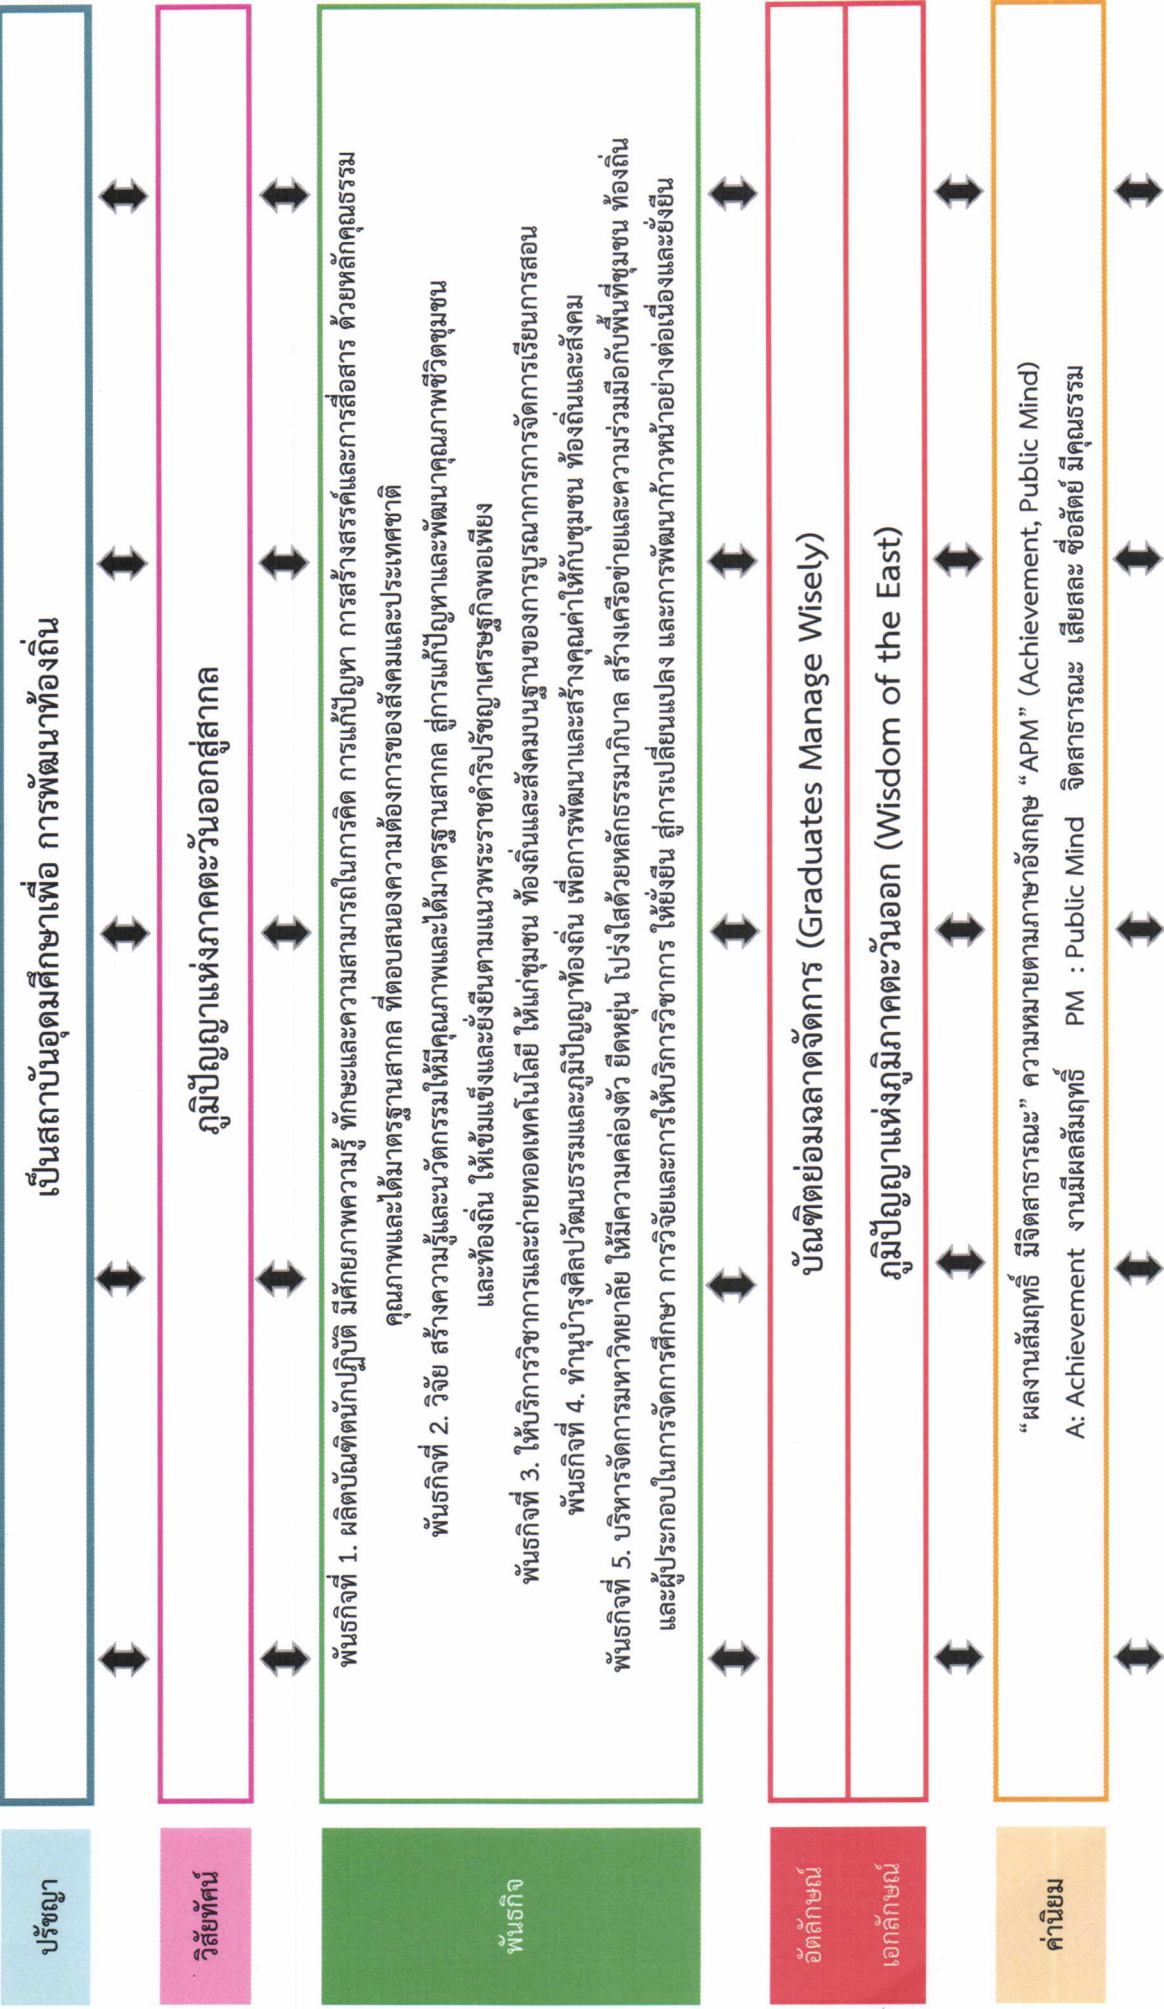 ปรัชญา
เป็นสถาบันอุดมศึกษาเพื่อ การพัฒนาท้องถิ่น
วิสัยทัศน์
ภูมิปัญญาแห่งภาคตะวันออกสู่สากล
พันธกิจ
พันธกิจที่ 1. ผลิตบัณฑิตนักปฏิบัติ มีศักยภาพความรู้ ทักษะและความสามารถในการคิด การแก้ปัญหา การสร้างสรรค์และการสื่อสาร ด้วยหลักคุณธรรม
คุณภาพและได้มาตรฐานสากล ที่ตอบสนองความต้องการของสังคมและประเทศชาติ
พันธกิจที่ 2. วิจัย สร้างความรู้และนวัตกรรมให้มีคุณภาพและได้มาตรฐานสากล สู่การแก้ปัญหาและพัฒนาคุณภาพชีวิตชุมชน
และท้องถิ่น ให้เข้มแข็งและยั่งยืนตามแนวพระราชดำริปรัชญาเศรษฐกิจพอเพียง
พันธกิจที่ 3. ให้บริการวิชาการและถ่ายทอดเทคโนโลยี ให้แก่ชุมชน ท้องถิ่นและสังคมบนฐานของการบูรณาการการจัดการเรียนการสอน
พันธกิจที่ 4. ทำนุบำรุงศิลปวัฒนธรรมและภูมิปัญญาท้องถิ่น เพื่อการพัฒนาและสร้างคุณค่าให้กับชุมชน ท้องถิ่นและสังคม
พันธกิจที่ 5. บริหารจัดการมหาวิทยาลัย ให้มีความคล่องตัว ยืดหยุ่น โปร่งใสด้วยหลักธรรมาภิบาล สร้างเครือข่ายและความร่วมมือกับพื้นที่ชุมชน ท้องถิ่น
และผู้ประกอบในการจัดการศึกษา การวิจัยและการให้บริการวิชาการ ให้ยั่งยืน สู่การเปลี่ยนแปลง และการพัฒนาก้าวหน้าอย่างต่อเนื่องและยั่งยืน
อัตลักษณ์
บัณฑิตย่อมฉลาดจัดการ (Graduates Manage Wisely)
เอกลักษณ์
ภูมิปัญญาแห่งภูมิภาคตะวันออก (Wisdom of the East)
ค่านิยม
“ผลงานสัมฤทธิ์ มีจิตสาธารณะ” ความหมายตามภาษาอังกฤษ “APM” (Achievement, Public Mind)
A: Achievement งานมีผลสัมฤทธิ์ PM : Public Mind จิตสาธารณะ เสียสละ ซื่อสัตย์ มีคุณธรรม